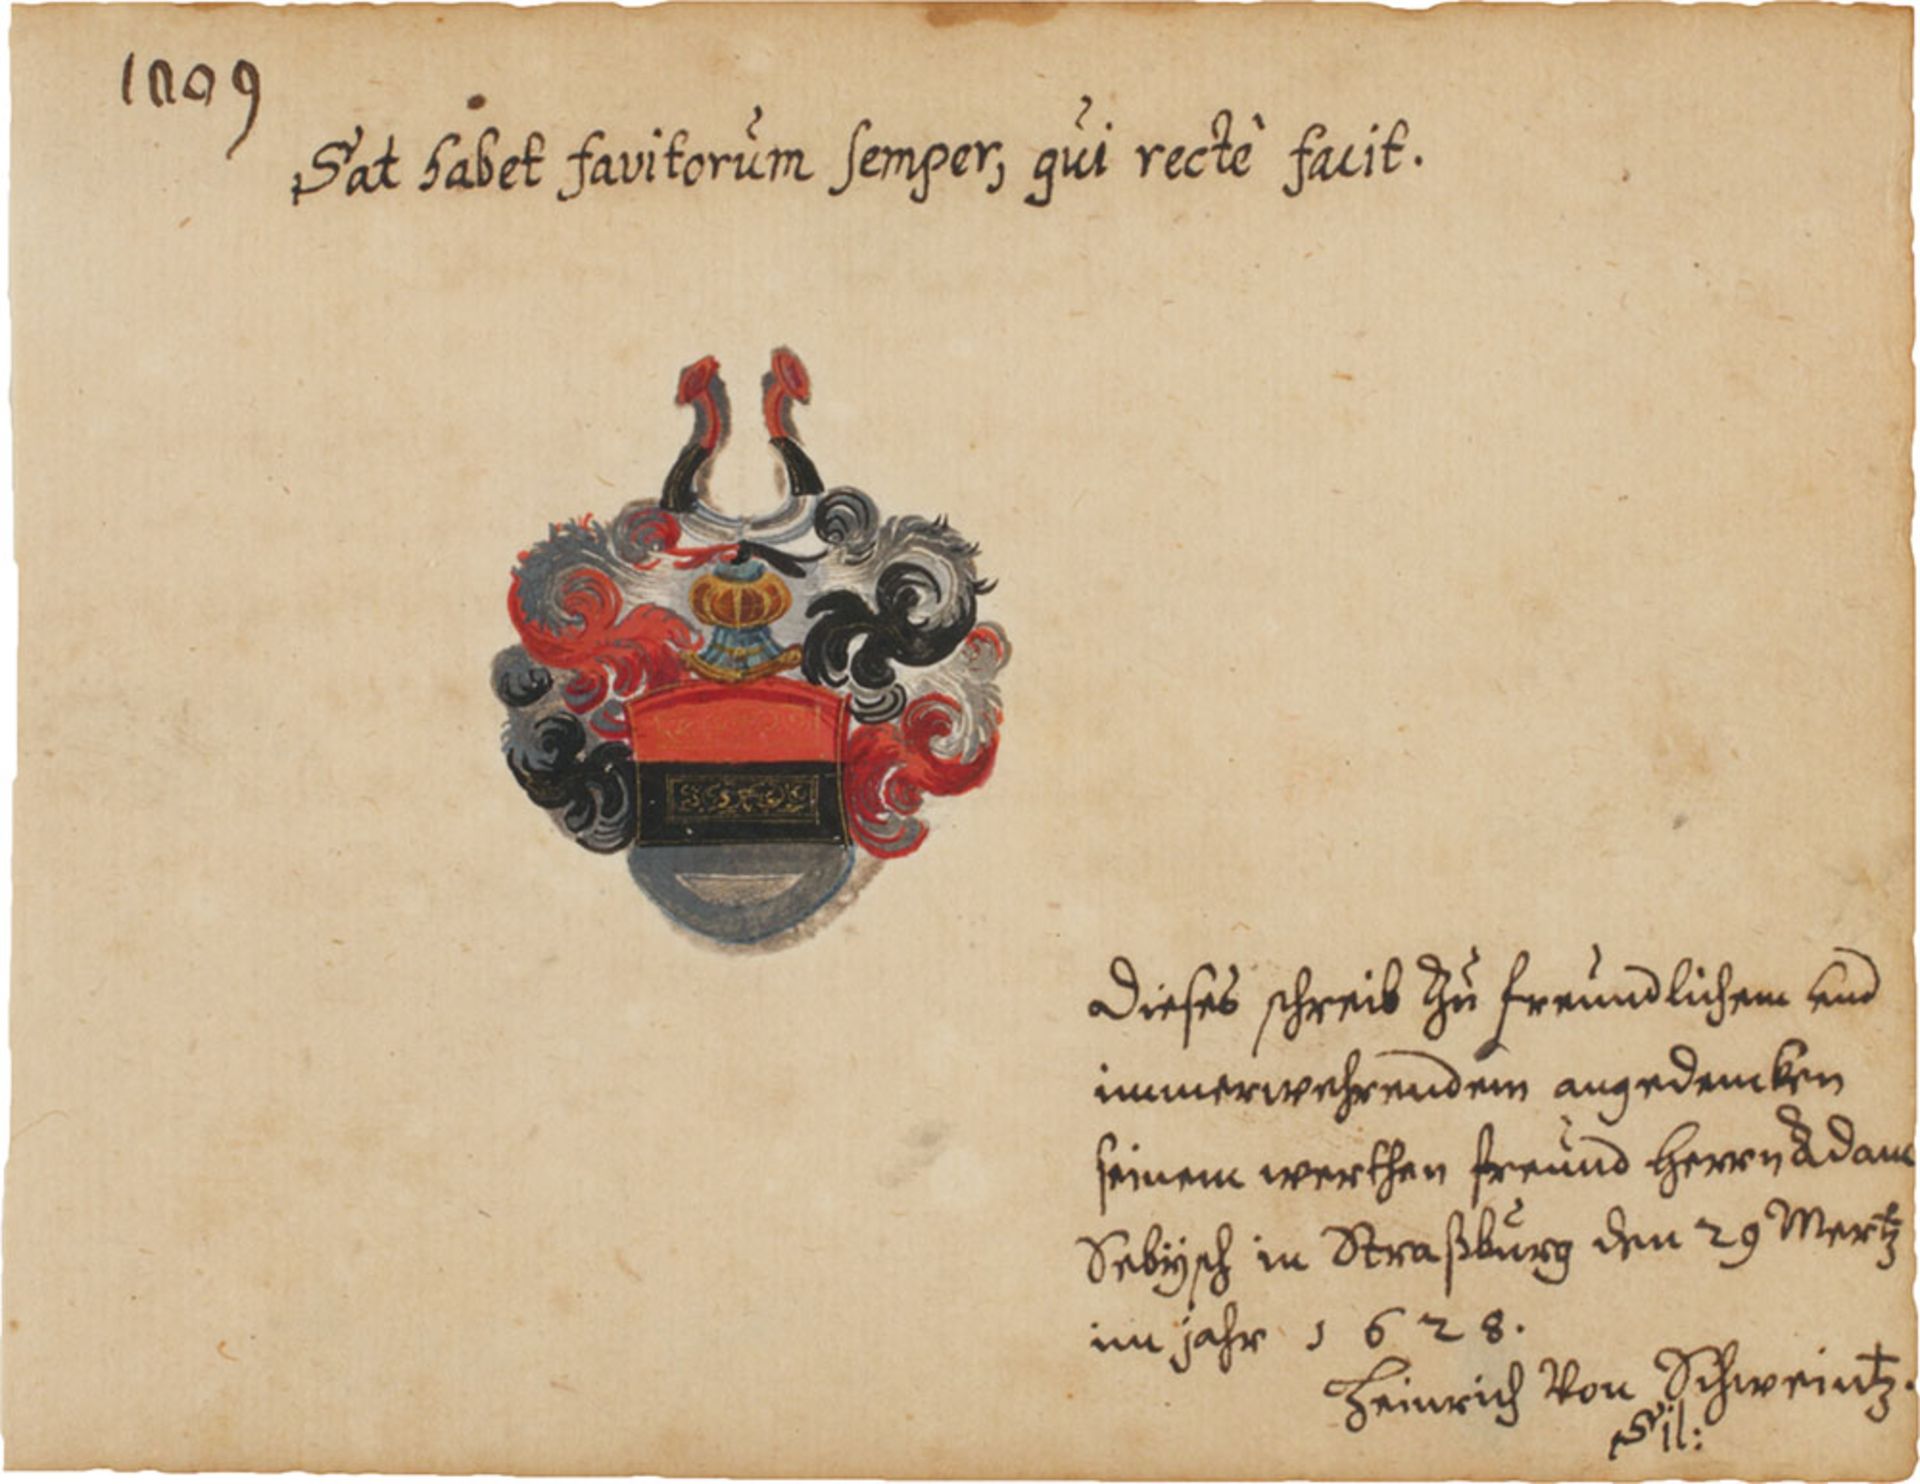 1809
Sat habet favitorum semper, qui rectè facit.
Dieses schreib Zu freundlichem und
immerwehrendem angedencken
seinem werthen freund Herrn Adam
Sebijsch in Straßburg den 29 Mertz
im jahr 1628.
Heinrich Von Schweintz.
Sil: